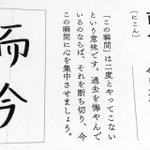 [にこん]
「この瞬間」は二度とやってこない
という意味です。過去を悔やんで
いるのならば、それを断ち切り、今
この瞬間に心を集中させましょう。
而今